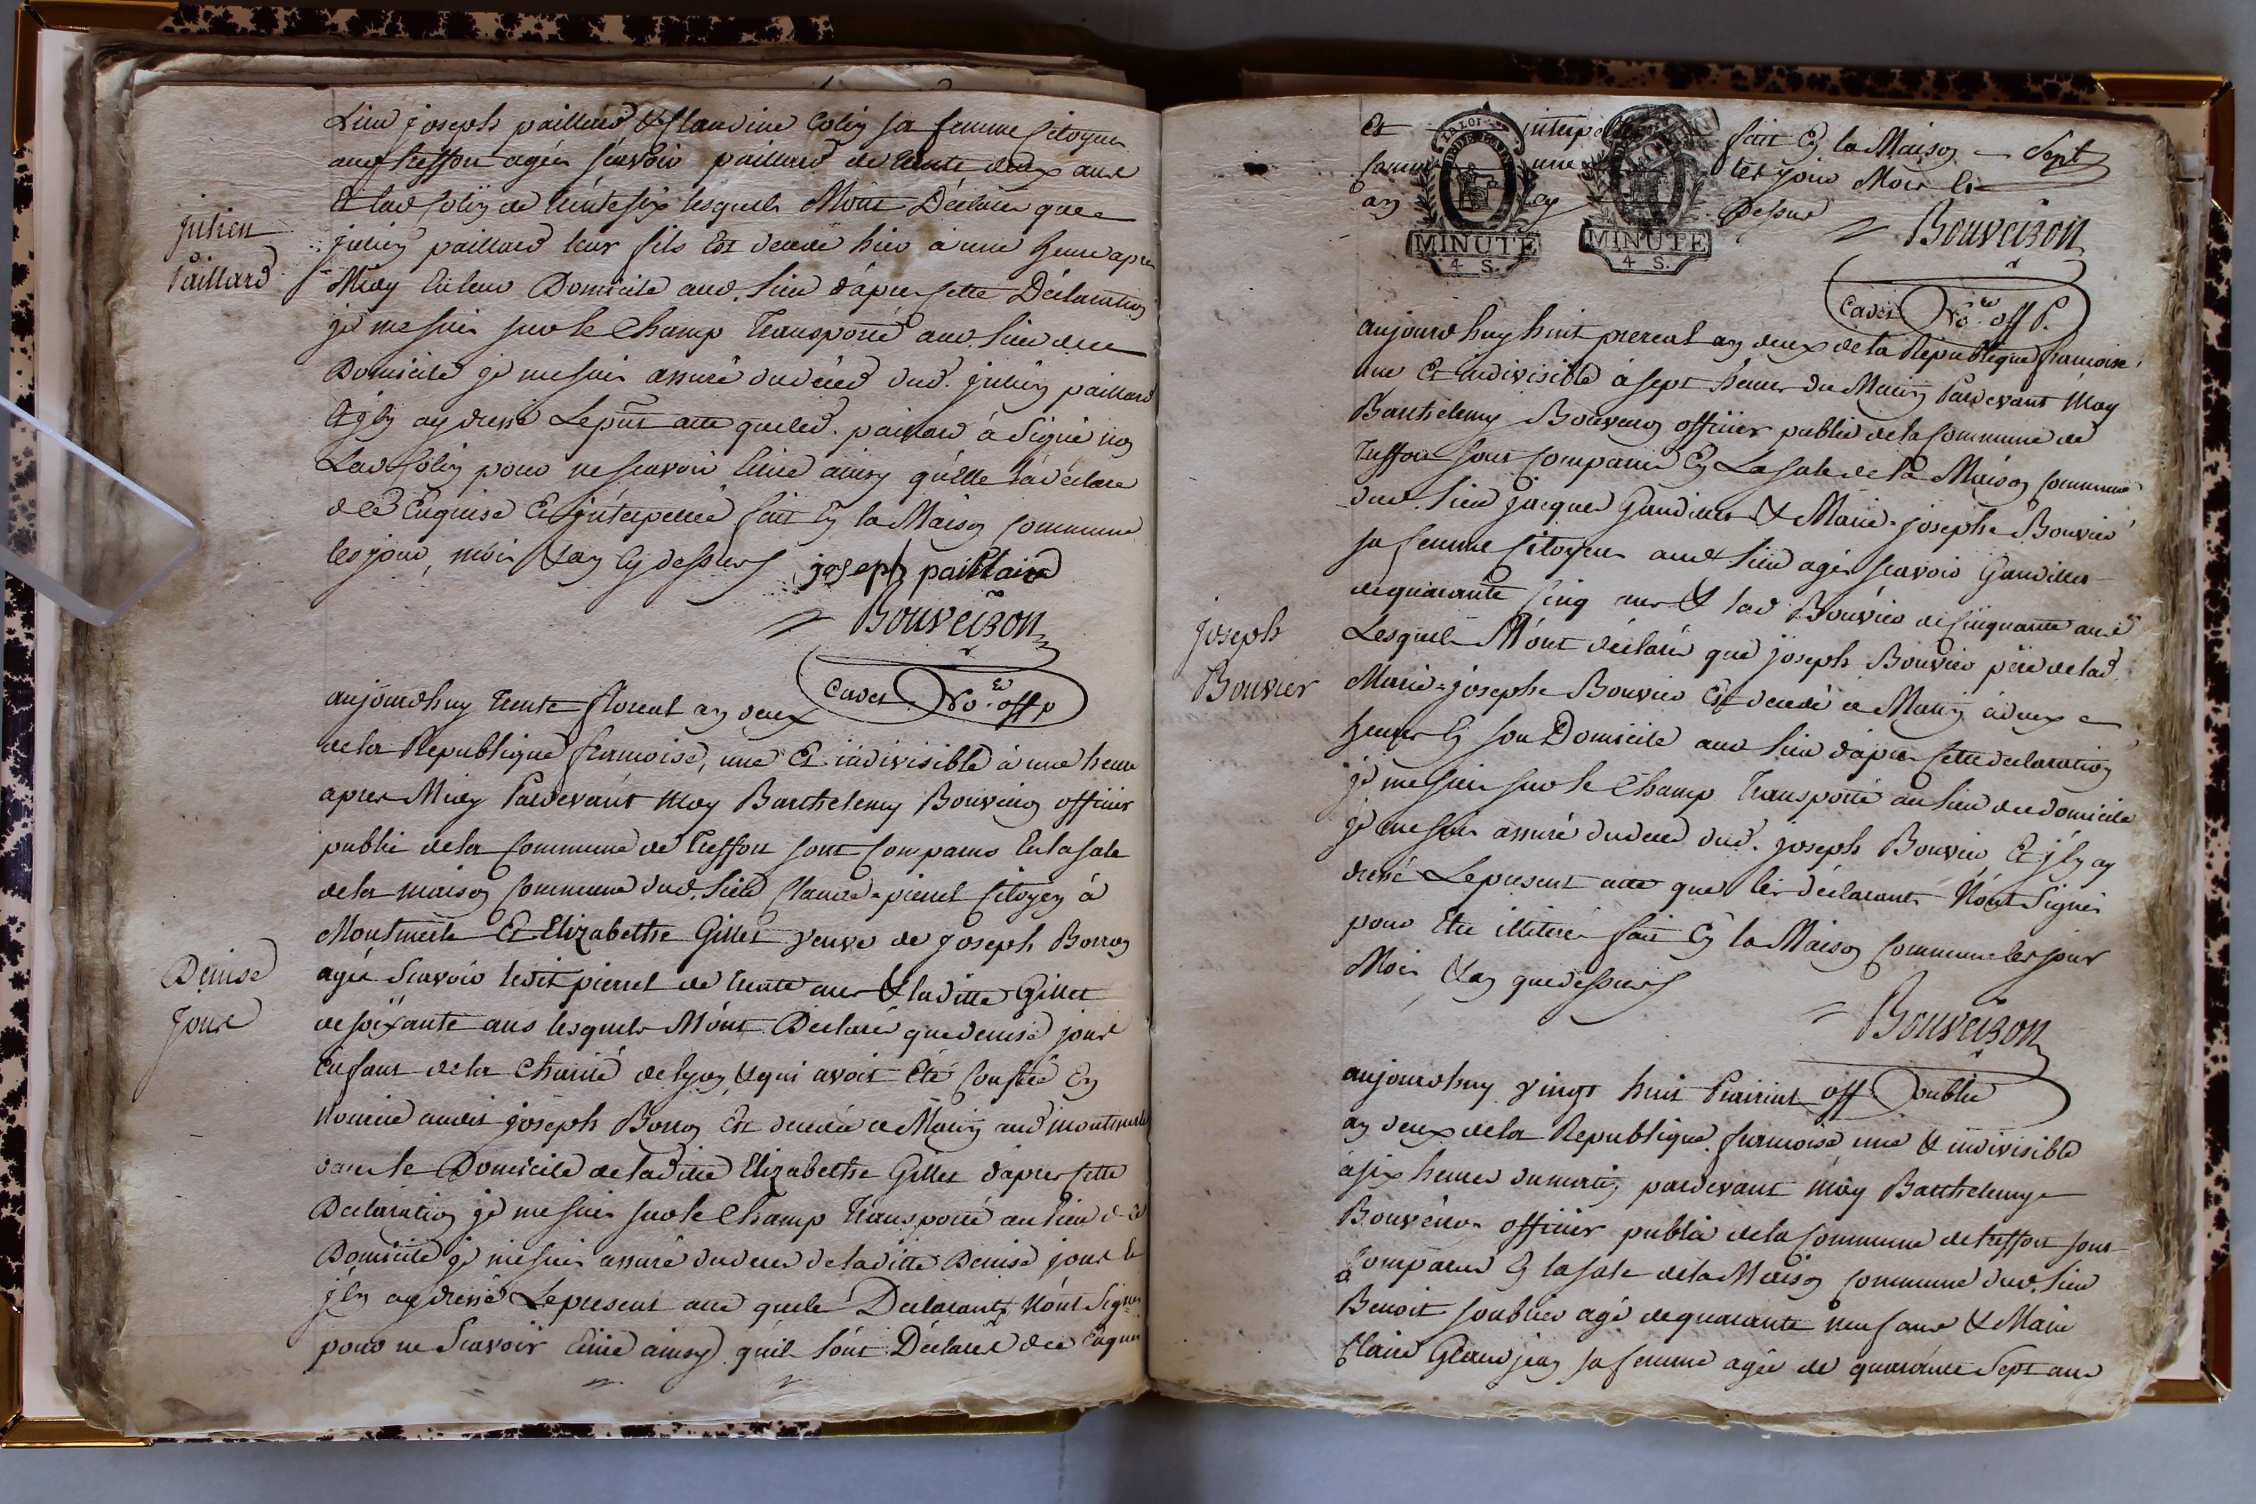 Lieu joseph paillard & Claudine Colin sa femme Citoyens
aud treffort agés sçavoir paillard de trente deux ans
Et lad Colin de trente six lesquels M'ont Déclaré que
julien paillard leur fils Est decedé hier à une heure apres
Midy En leur Domicile aud. Lieu d'après Cette Déclaration
je me suis sur le Champ Transporté aud. Lieu de ce
Domicile je me suis assuré du décéd dud. julien paillard
Et j'En ay dressé Le pnt acte que led. paillard à Signé non
Lad Colin pour ne scavoir Ecrire ainsy qu'elle l'à déclaré
de ce Enquise Et jnterpellée fait En la Maison Commune
les jour, mois & an Cy dessus joseph paillaird
Bouveiron
Cadet No.re off p
julien
Paillard
aujourdhuy trente floreal an deux
de la Republique francoise, une Et indivisible à une heure
apres Midy Pardevant Moy Barthelemy Bouveiron officier
public de la Commune de Treffort sont Comparus En la sale
de la maison Commune dud. Lieu Claude-pierrel Citoyen à
Montmerle Et Elizabethe Gillet veuve de joseph Borron
agés Scavoir ledit pierrel de trente ans & la ditte Gillet
de soixante ans lesquels M'ont Declaré que denise jour
Enfant de la Charité de lyon & qui avoit Eté Confiée En
Nourrice audit joseph Borron Est decedée ce Matin aud montmerle
dans le Domicile de laditte Elizabethe Gillet d'apres Cette
Declaration je me suis sur le Champ Transporté au lieu de ce
Domicile je me suis assuré du deces de laditte Denise jour Et
j'En ay dressé Le present acte que les Declarants N'ont Signés
pour ne Scavoir Ecrire ainsy qu'ils l'ont Déclaré de ce Enquis
Denise
jour
Et interpellés fait En la Maison Sept
Commune les jour Mois Et
an Cy Dessus
LA LOI
MINUTE
4 S.
MINUTE
4 S.
Bouveiron
Cadet No.re off P.
aujourdhuy huit prereal an deux de la Republique francoise,
une Et indivisible à sept heures du Matin Pardevant Moy
Barthelemy Bouveiron officier public de la Commune de
Treffort sont Comparus En La sale de la Maison Commune
dud. Lieu jacques Gaudillet & Marie-josephe Bouvier
sa femme Citoyens aud Lieu agés scavoir Gaudillet
de quarante Cinq ans & lad Bouvier de Cinquante ans
Lesquels M'ont déclaré que joseph Bouvier père de lad.
Marie-josephe Bouvier Est decedé ce Matin à deux
heures En son Domicile aud Lieu d'apres Cette declaration
je me suis sur le Champ Transporté au lieu de ce domicile
je me suis assuré du deced dud. joseph Bouvier Et j'En ay
dressé Le present acte que les déclarants N'ont Signés
pour Etre illiterés fait En la Maison Commune les jour
Mois & an que dessus
Bouveiron
off public
joseph
Bouvier
aujourdhuy vingt huit Prairial
an deux de la Republique francoise une & indivisible
à six heures du matin pardevant Moy Barthelemy
Bouveiron officier public de la Commune de treffort sont
Comparus En la sale de la Maison Commune dud. Lieu
Benoit agé de quarante neuf ans & Marie
Claire Grandjean sa femme agée de quarante Sept ans